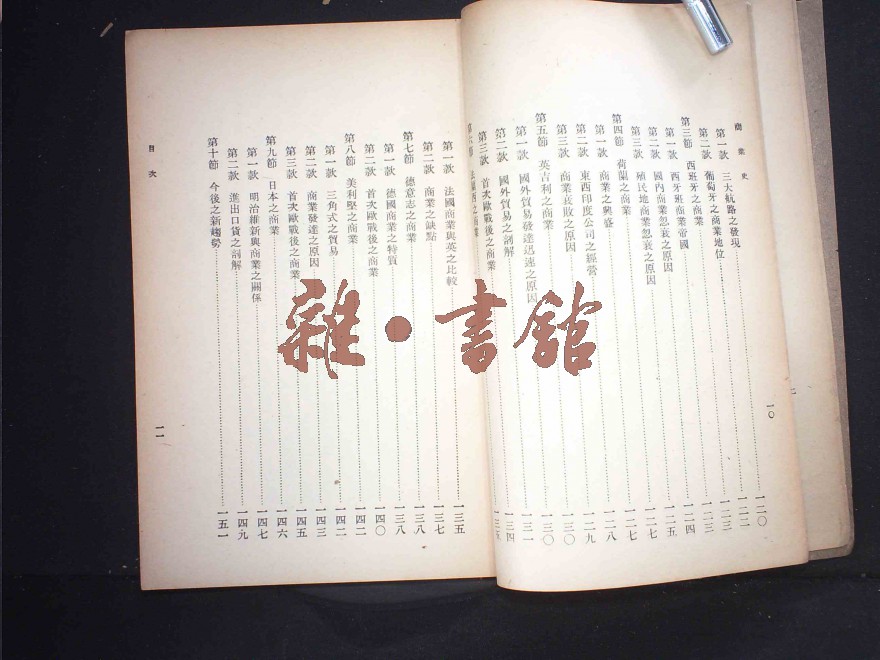 商業史
第一款 三大航路之發現……一二〇
第二款 葡萄牙之商業地位……一二二
第三節 西班牙之商業……一二三
第一款 西牙班商業帝國……一二三
第二款 國內商業忽衰之原因……一二四
第三款 殖民地商業忽衰之原因……一二五
第四節 荷蘭之商業……一二七
第一款 商業之興盛……一二七
第二款 東西印度公司之經營……一二八
第三款 商業衰敗之原因……一二九
第五節 英吉利之商業……一三〇
第一款 國外貿易發達迅速之原因……一三〇
第二款 國外貿易之剖解……一三一
第三款 首次歐戰後之商業……一三四
第六節 法蘭西之商業……一三五
一〇
第一款 法國商業與英之比較……一三五
第二款 商業之缺點……一三七
第七節 德意志之商業……一三八
第一款 德國商業之特質……一三八
第二款 首次歐戰後之商業……一四〇
第八節 美利堅之商業……一四二
第一款 三角式之貿易……一四二
第二款 商業發達之原因……一四三
第三款 首次歐戰後之商業……一四五
第九節 日本之商業……一四六
第一款 明治維新與商業之關係……一四七
第二款 進出口貨之剖解……一四九
第十節 今後之新趨勢……一五一
目次
一一
雜·書館